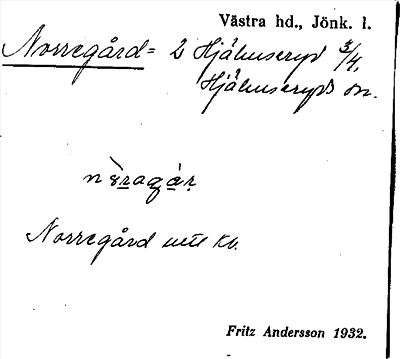 Västra hd., Jönk. l.
Norregård = 2 Hjälmseryd 3/4.
Hjälmseryds sn.
Norregård utt Kb.
Fritz Andersson 1932.